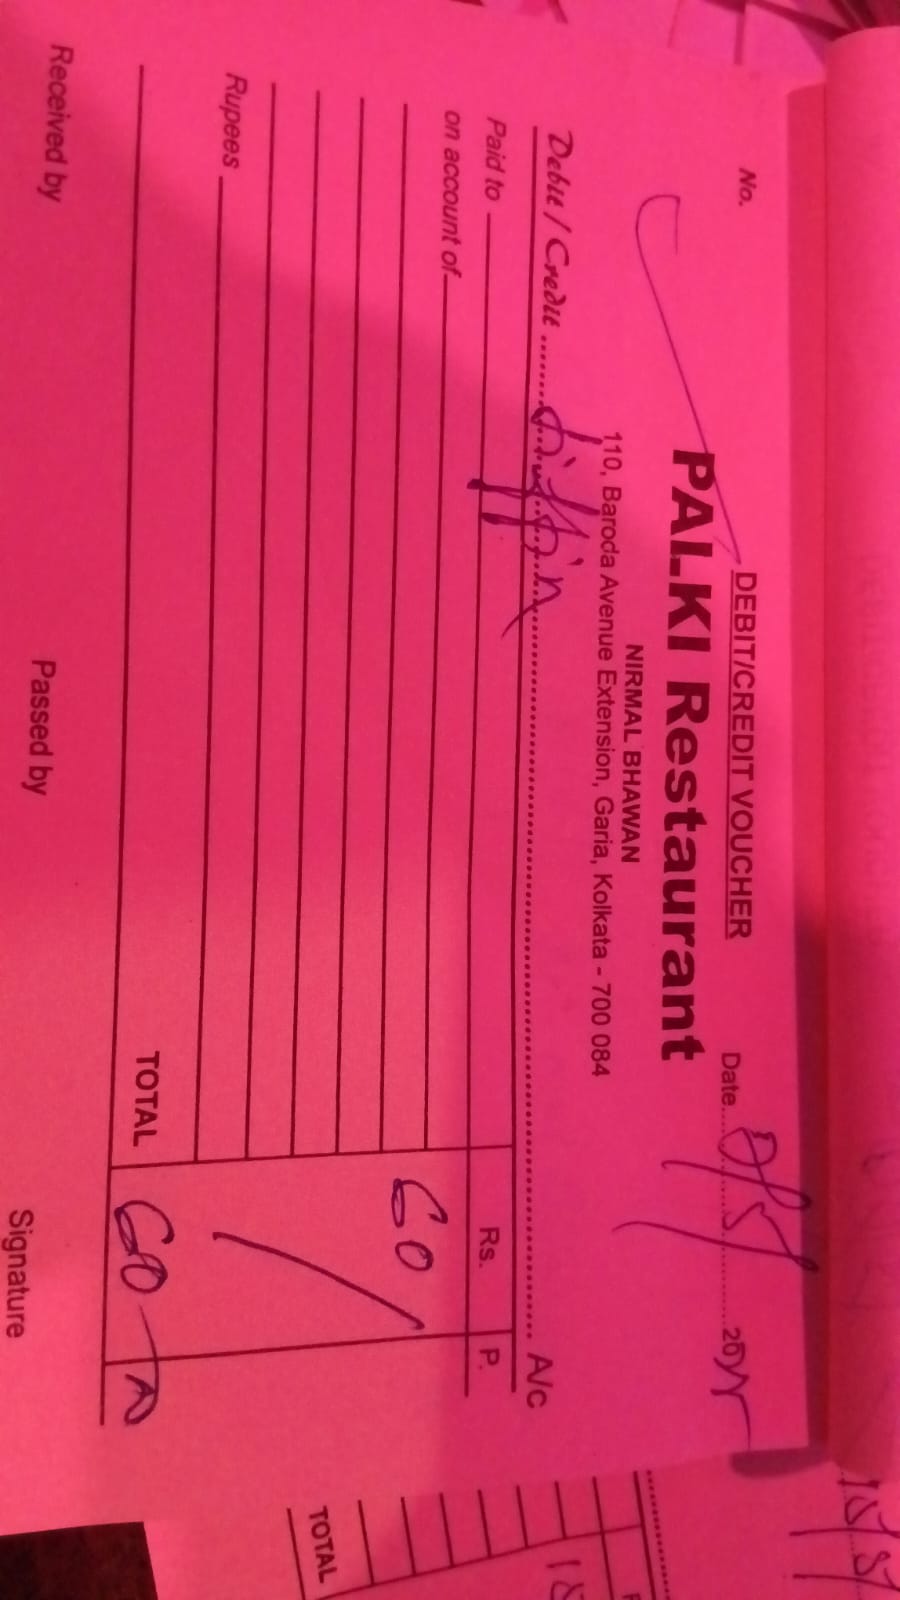 No.
DEBIT/CREDIT VOUCHER
Date
PALKI Restaurant
NIRMAL BHAWAN
110, Baroda Avenue Extension, Garia, Kolkata - 700 084
Debit / Credit ........ tiffin ........ A/c
Paid to
Rs. P.
on account of
60
Rupees
TOTAL 60
Received by Passed by Signature
TOTAL